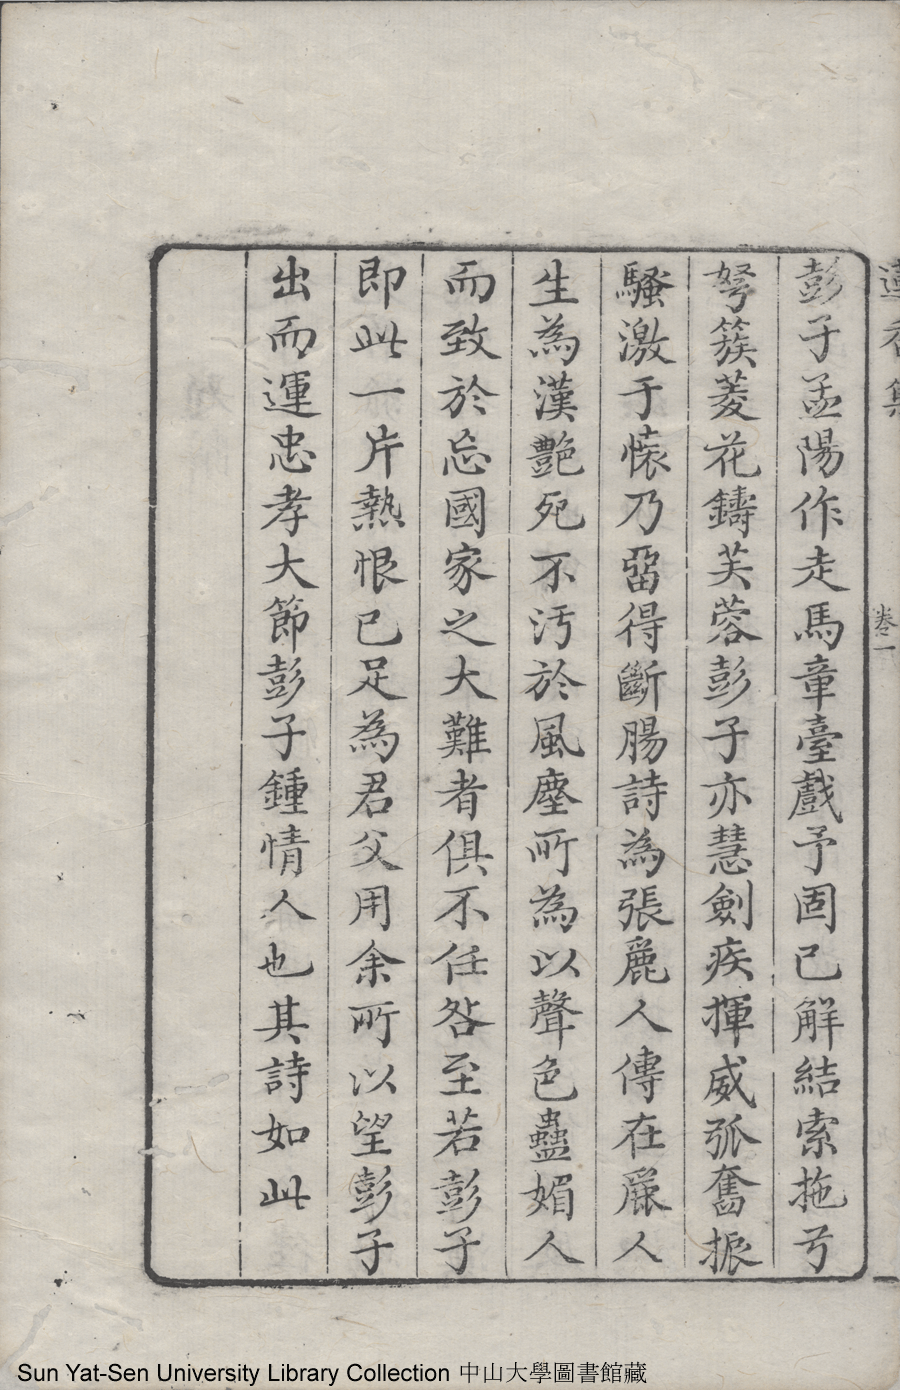 蓮香集
卷一
彭子孟陽作走馬章臺戲予固已解結索拖弓
弩簇菱花鑄芙蓉彭子亦慧劍疾揮威弧奮振
騷激于懷乃畱得斷腸詩為張麗人傳在麗人
生為漢艷死不汚於風塵所為以聲色蠱媚人
而致於忘國家之大難者俱不任咎至若彭子
即此一片熱恨已足為君父用余所以望彭子
出而運忠孝大節彭子鍾情人也其詩如此
Sun Yat-Sen University Library Collection 中山大學圖書館藏